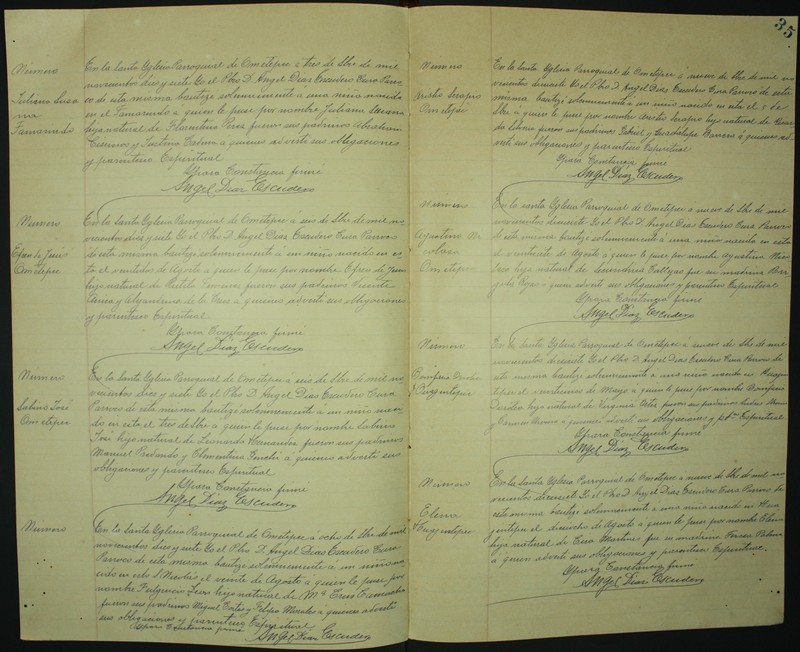 35
Número
Juliana Susa
na
Tamarindo
En la Santa Yglesia Parroquial de Ometepec a tres de Sbre de mil
novecientos dies y siete Yo el Pbro D. Angel Dias Escudero Cura Parro
co de esta misma bautize solemnemente a una niña nacida
en el Tamarindo a quien le puse por nombre Juliana Susana
hija natural de Florentino Perez fueron sus padrinos Abraham
y Faustina a quienes advertí sus obligaciones
y parentesco Espiritual
Ypara Constancia firmé
Angel Diaz Escudero
Número
Efren de Jesus
Ometepec
En la Santa Yglesia Parroquial de Ometepec a seis de Sbre de mil no
vecientos dies y siete Yo el Pbro D. Angel Dias Escudero Cura Parroco
de esta misma bautize solemnemente a un niño nacido en es
ta el veintidos de Agosto a quien le puse por nombre Efren de Jesus
hijo natural de fueron sus padrinos Vicente
y de la Cruz a quienes advertí sus obligaciones
y parentesco Espiritual
Ypara Constancia firmé
Angel Diaz Escudero
Número
Sabino José
Ometepec
En la Santa Yglesia Parroquial de Ometepec a seis de Sbre de mil no
vecientos dies y siete Yo el Pbro D. Angel Dias Escudero Cura
Parroco de esta misma bautize solemnemente a un niño naci
do en esta el tres de Sbre a quien le puse por nombre Sabino
José hijo natural de Leonarda Hernandez fueron sus padrinos
Manuel y Florentina a quienes advertí sus
obligaciones y parentesco Espiritual
Ypara Constancia firmé
Angel Diaz Escudero
Número
En la Santa Yglesia Parroquial de Ometepec a ocho de Sbre de mil
novecientos dies y siete Yo el Pbro D. Angel Dias Escudero Cura
Parroco de esta misma bautize solemnemente a un niño na
cido en Sn Nicolas el veinte de Agosto a quien le puse por
nombre Fulgencio Leon hijo natural de Mª
fueron sus padrinos Miguel Cortes y Felipa Morales a quienes advertí
sus obligaciones y parentesco Espiritual
Ypara Constancia firmé Angel Diaz Escudero
Número
Serapio
Ometepec
En la Santa Yglesia Parroquial de Ometepec a nueve de Sbre de mil no
vecientos diesisiete Yo el Pbro D. Angel Dias Escudero Cura Parroco de esta
misma bautize solemnemente a un niño nacido en esta el de
Sbre a quien le puse por nombre Serapio hijo natural de
fueron sus padrinos Gabriel y Guadalupe a quienes ad
vertí sus obligaciones y parentesco Espiritual
Ypara Constancia firmé
Angel Diaz Escudero
Número
Agustina Ni
colasa
Ometepec
En la Santa Yglesia Parroquial de Ometepec a nueve de Sbre de mil
novecientos diesisiete Yo el Pbro D. Angel Dias Escudero Cura Parroco
de esta misma bautize solemnemente a una niña nacida en esta
de Agosto a quien le puse por nombre Agustina Nico
lasa hija natural de Secundina Vallejas fue su madrina
Rojas a quien advertí sus obligaciones y parentesco Espiritual
Ypara Constancia firmé
Angel Diaz Escudero
Número
En la Santa Yglesia Parroquial de Ometepec a nueve de Sbre de mil
novecientos diesisiete Yo el Pbro D. Angel Dias Escudero Cura Parroco de
esta misma bautize solemnemente a una niña nacida en
de Mayo a quien le puse por nombre
hija natural de Virginia fueron sus padrinos
y a quienes advertí sus obligaciones y ptco Espiritual
Ypara Constancia firmé
Angel Diaz Escudero
Número
Elena
En la Santa Yglesia Parroquial de Ometepec a nueve de Sbre de mil no
vecientos diesisiete Yo el Pbro D. Angel Dias Escudero Cura Parroco de
esta misma bautize solemnemente a una niña nacida en
el dieciocho de Agosto a quien le puse por nombre Elena
hija natural de Martinez fue su madrina
a quien advertí sus obligaciones y parentesco Espiritual
Ypara Constancia firmé
Angel Diaz Escudero